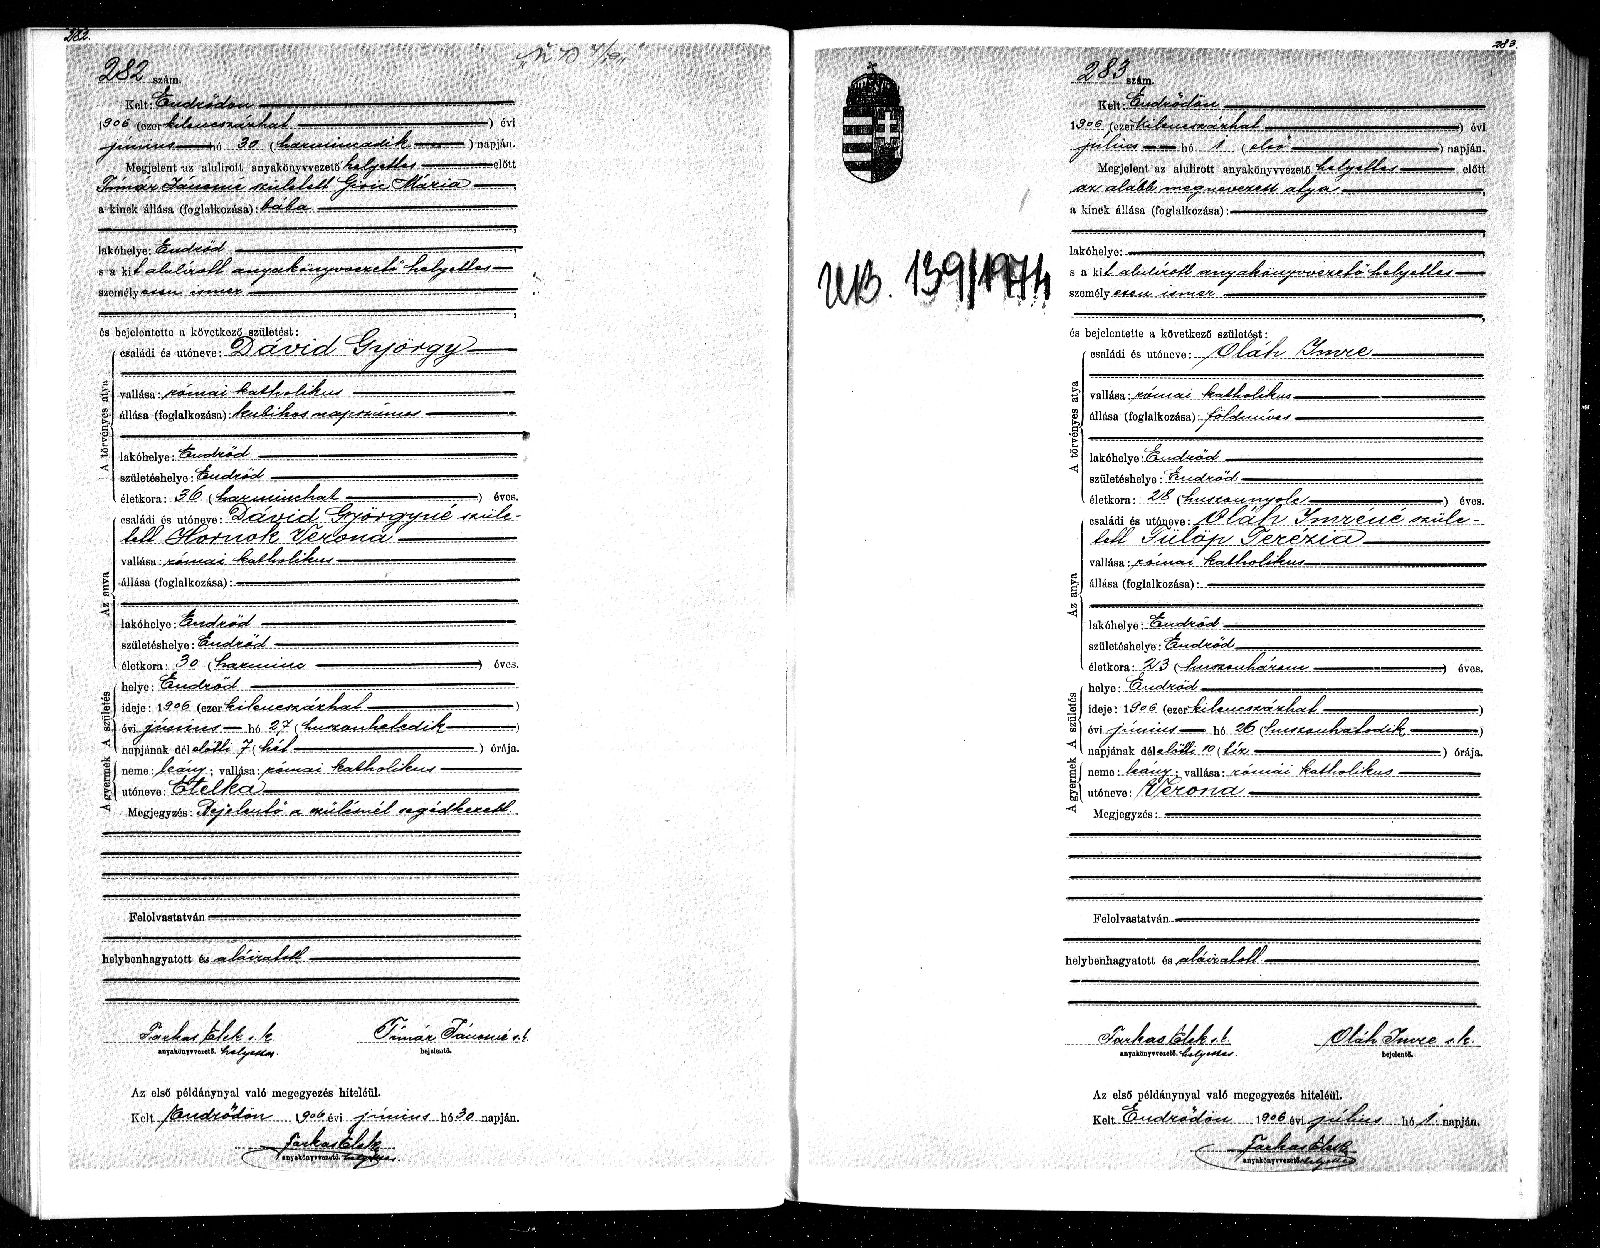 282.
282 szám.
Kelt: Endrődön
1906 (ezer kilencszázhat ) évi
június hó 30 (harminczadik ) napján.
Megjelent az alulirott anyakönyvvezető helyettes előtt
Tímár Jánosné született Giou Mária
a kinek állása (foglalkozása): bába
lakóhelye: Endrőd
s a kit alulírott anyakönyvvezető helyettes
személyesen ismer
és bejelentette a következő születést:
A törvényes atya
családi és utóneve: Dávid György
vallása: római katholikus
állása (foglalkozása): kubikos napszámos
lakóhelye: Endrőd
születéshelye: Endrőd
életkora: 36 (harminchat ) éves.
Az anya
családi és utóneve: Dávid Györgyné szüle-
tett Hornok Verona
vallása: római katholikus
állása (foglalkozása):
lakóhelye: Endrőd
születéshelye: Endrőd
életkora: 30 (harmincz ) éves.
A születés
helye: Endrőd
ideje: 1906 (ezer kilencszázhat )
évi június hó 27 (huszonhetedik )
napjának délelőtti 7 (hét ) órája.
A gyermek
neme: leány; vallása: római katholikus
utóneve: Etelka
Megjegyzés: Bejelentő a szülésnél segédkezett
Felolvastatván
helybenhagyatott és aláíratott
Farkas Elek s. k. Tímár Jánosné s. k.
anyakönyvvezető. helyettes. bejelentő.
Az első példánynyal való megegyezés hiteléül.
Kelt Endrődön 1906 évi június hó 30 napján.
Farkas Elek
anyakönyvvezető. helyettes.
283.
283 szám.
Kelt: Endrődön
1906 (ezer kilencszázhat ) évi
július hó 1 (első ) napján.
Megjelent az alulirott anyakönyvvezető helyettes előtt
az alább megnevezett atya
a kinek állása (foglalkozása):
lakóhelye:
UB. 139/1974
s a kit alulírott anyakönyvvezető helyettes
személyesen ismer
és bejelentette a következő születést:
A törvényes atya
családi és utóneve: Oláh Imre
vallása: római katholikus
állása (foglalkozása): földmíves
lakóhelye: Endrőd
születéshelye: Endrőd
életkora: 28 (huszonnyolc ) éves.
Az anya
családi és utóneve: Oláh Imréné szüle-
tett Fülöp Terézia
vallása: római katholikus
állása (foglalkozása):
lakóhelye: Endrőd
születéshelye: Endrőd
életkora: 23 (huszonhárom ) éves.
A születés
helye: Endrőd
ideje: 1906 (ezer kilencszázhat )
évi június hó 26 (huszonhatodik )
napjának délelőtti 10 (tíz ) órája.
A gyermek
neme: leány; vallása: római katholikus
utóneve: Verona
Megjegyzés:
Felolvastatván
helybenhagyatott és aláíratott
Farkas Elek s. k. Oláh Imre s. k.
anyakönyvvezető. helyettes. bejelentő.
Az első példánynyal való megegyezés hiteléül.
Kelt Endrődön 1906 évi július hó 1 napján.
Farkas Elek
anyakönyvvezető helyettes